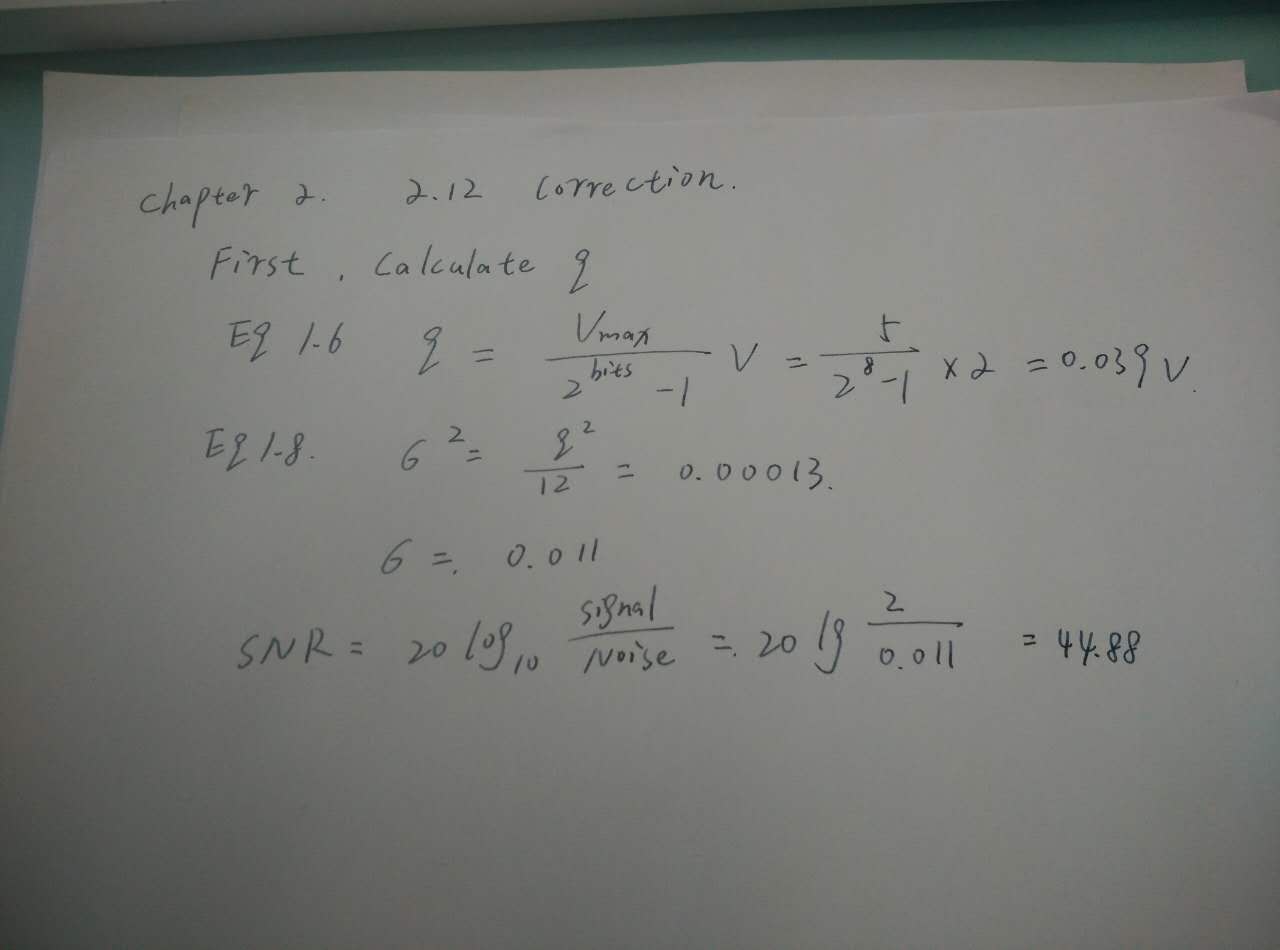 Chapter 2. 2.12 Correction.
First, Calculate q
Eq 1.6 q = Vmax / 2^bits - 1 V = 5 / 2^8 - 1 × 2 = 0.039 V.
Eq 1.8. σ^2 = q^2 / 12 = 0.00013.
σ = 0.011
SNR = 20 log10 signal / Noise = 20 lg 2 / 0.011 = 44.88